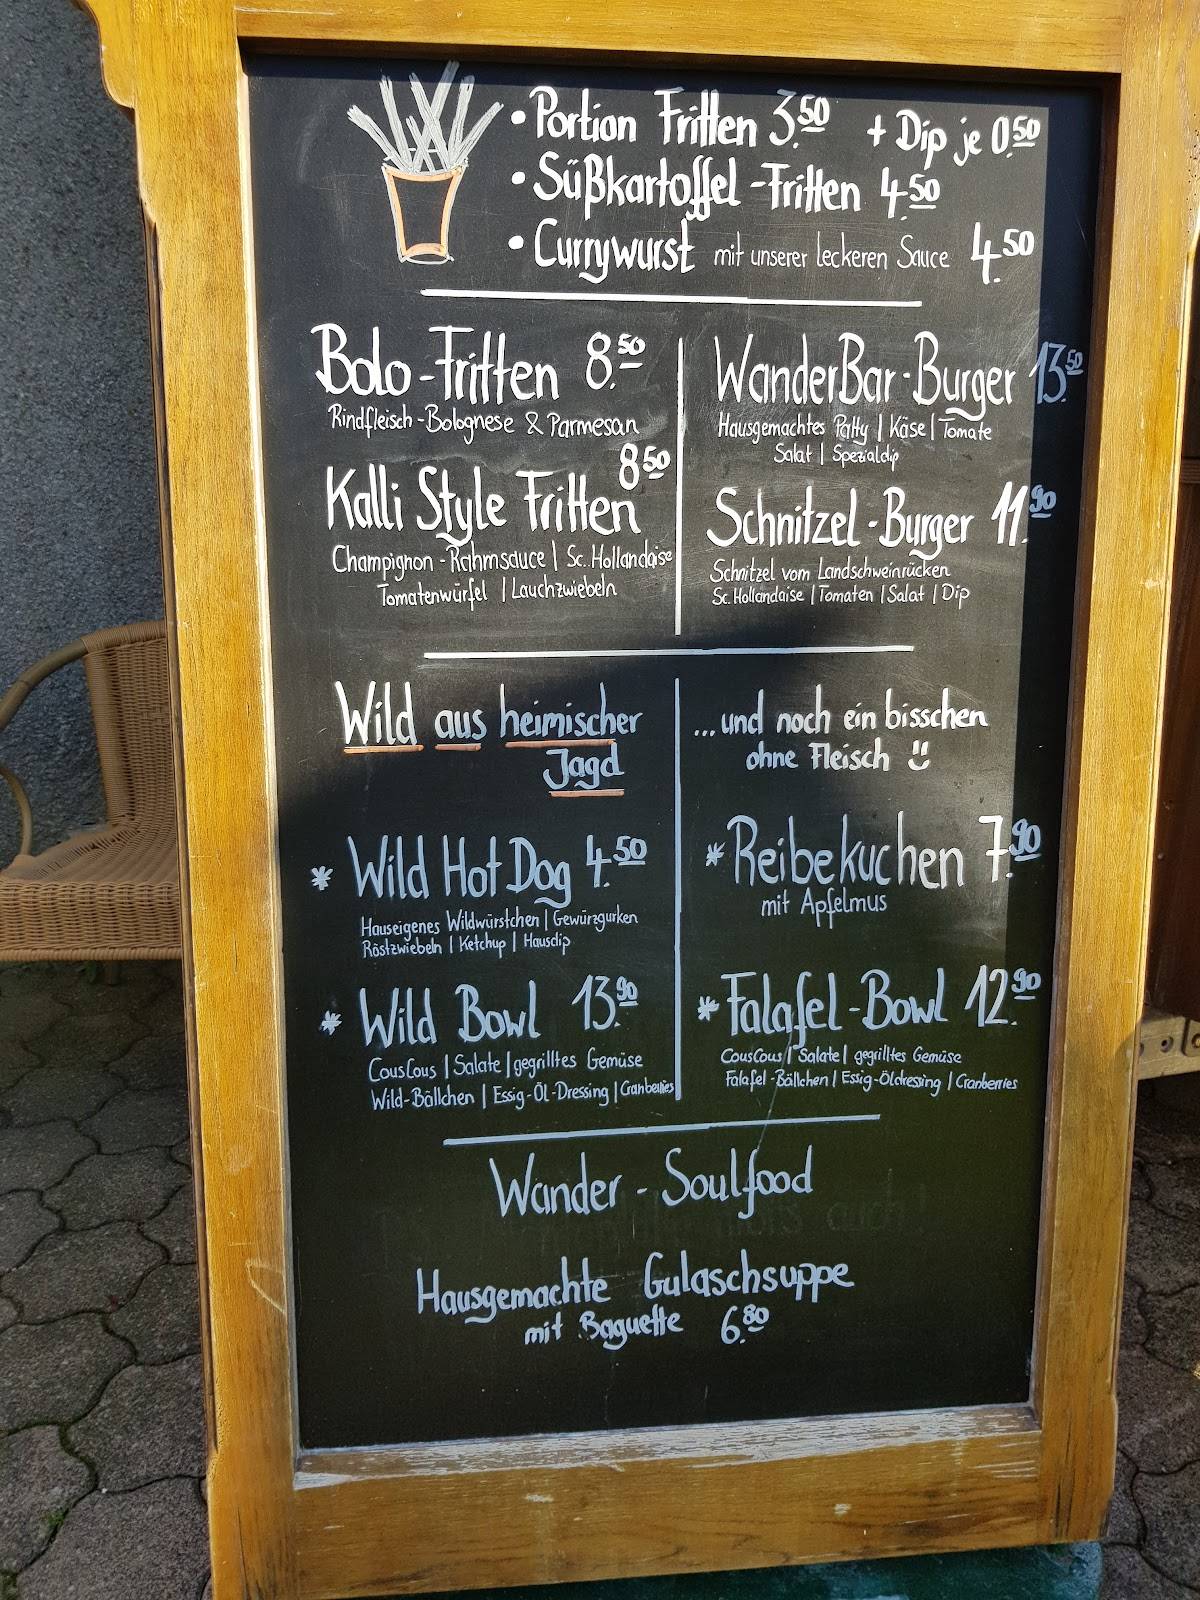 • Portion Fritten 3.50 + Dip je 0.50
• Süßkartoffel-Fritten 4.50
• Currywurst mit unserer leckeren Sauce 4.50
Bolo-Fritten 8.50
Rindfleisch-Bolognese & Parmesan
Kalli Style Fritten 8.50
Champignon-Rahmsauce | Sc. Hollandaise
Tomatenwürfel | Lauchzwiebeln
WanderBar-Burger 13.50
Hausgemachtes Patty | Käse | Tomate
Salat | Spezialdip
Schnitzel-Burger 11.90
Schnitzel vom Landschweinrücken
Sc. Hollandaise | Tomaten | Salat | Dip
Wild aus heimischer
Jagd
* Wild Hot Dog 4.50
Hauseigenes Wildwürstchen | Gewürzgurken
Röstzwiebeln | Ketchup | Hausdip
* Wild Bowl 13.90
CousCous | Salate | gegrilltes Gemüse
Wild-Bällchen | Essig-Öl-Dressing | Cranberries
...und noch ein bisschen
ohne Fleisch
* Reibekuchen 7.90
mit Apfelmus
* Falafel-Bowl 12.90
CousCous | Salate | gegrilltes Gemüse
Falafel-Bällchen | Essig-Öldressing | Cranberries
Wander-Soulfood
Hausgemachte Gulaschsuppe
mit Baguette 6.80